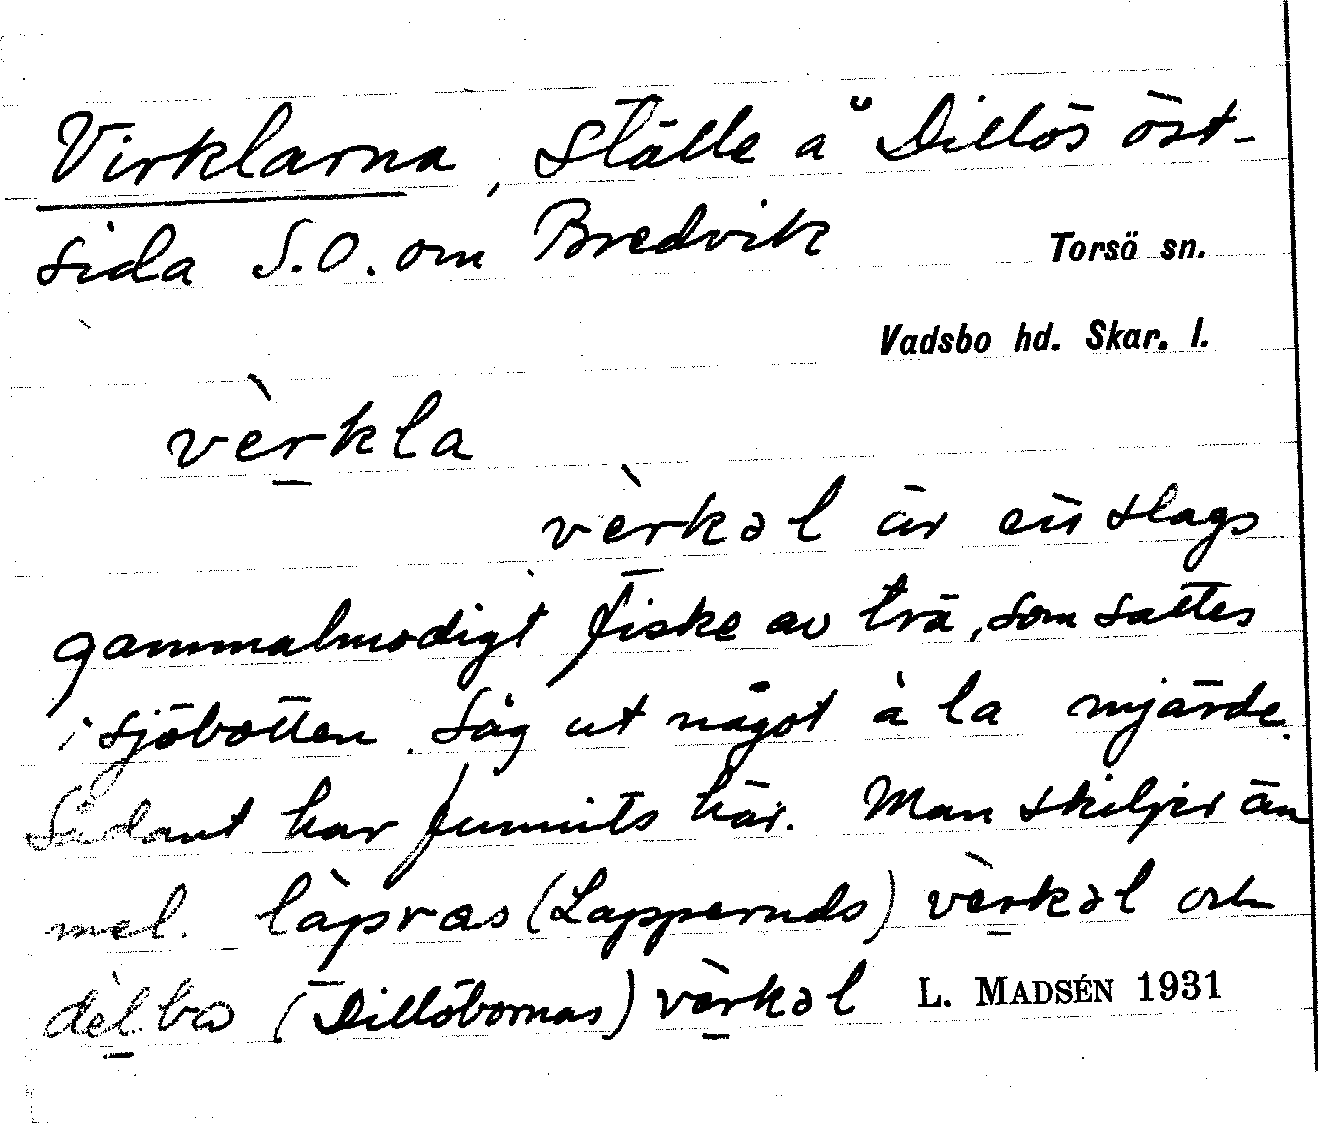 Virklarna, Ställe å Dillös öst-
sida S.O. om Bredvik
Torsö sn.
Vadsbo hd. Skar. l.
vèrkla
vèrkəl är ett slags
gammalmodigt fiske av trä, som sattes
i sjöbotten. Såg ut något à la mjärde.
Sådant har funnits här. Man skiljer än
mel. làpras (Lappernds) vèrkəl och
dèlba (Dillöbornas) vèrkəl
L. MADSÉN 1931